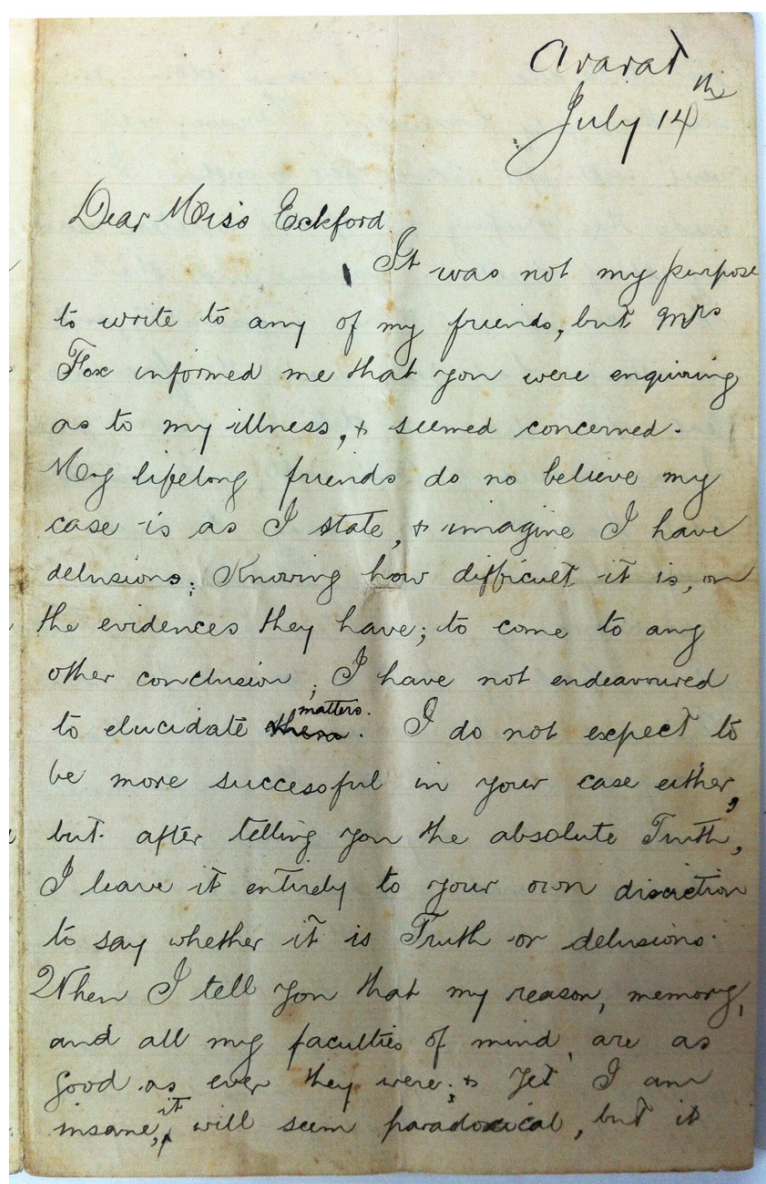 Ararat
July 14th
Dear Miss Eckford
It was not my purpose
to write to any of my friends, but Mrs
Fox informed me that you were enquiring
as to my illness, & seemed concerned.
My lifelong friends do no believe my
case is as I state, & imagine I have
delusions; Knowing how difficult it is, on
the evidences they have; to come to any
other conclusion; I have not endeavoured
to elucidate them matters. I do not expect to
be more successful in your case either,
but after telling you the absolute Truth,
I leave it entirely to your own discretion
to say whether it is Truth or delusions.
When I tell you that my reason, memory,
and all my faculties of mind, are as
good as ever they were; & yet I am
insane, it will seem paradoxical, but it